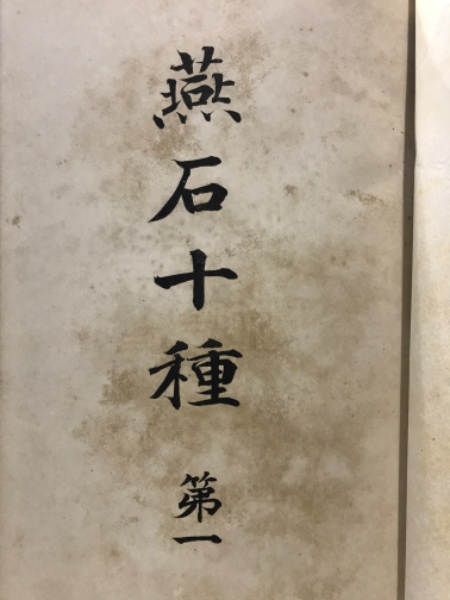 燕石十種 第一